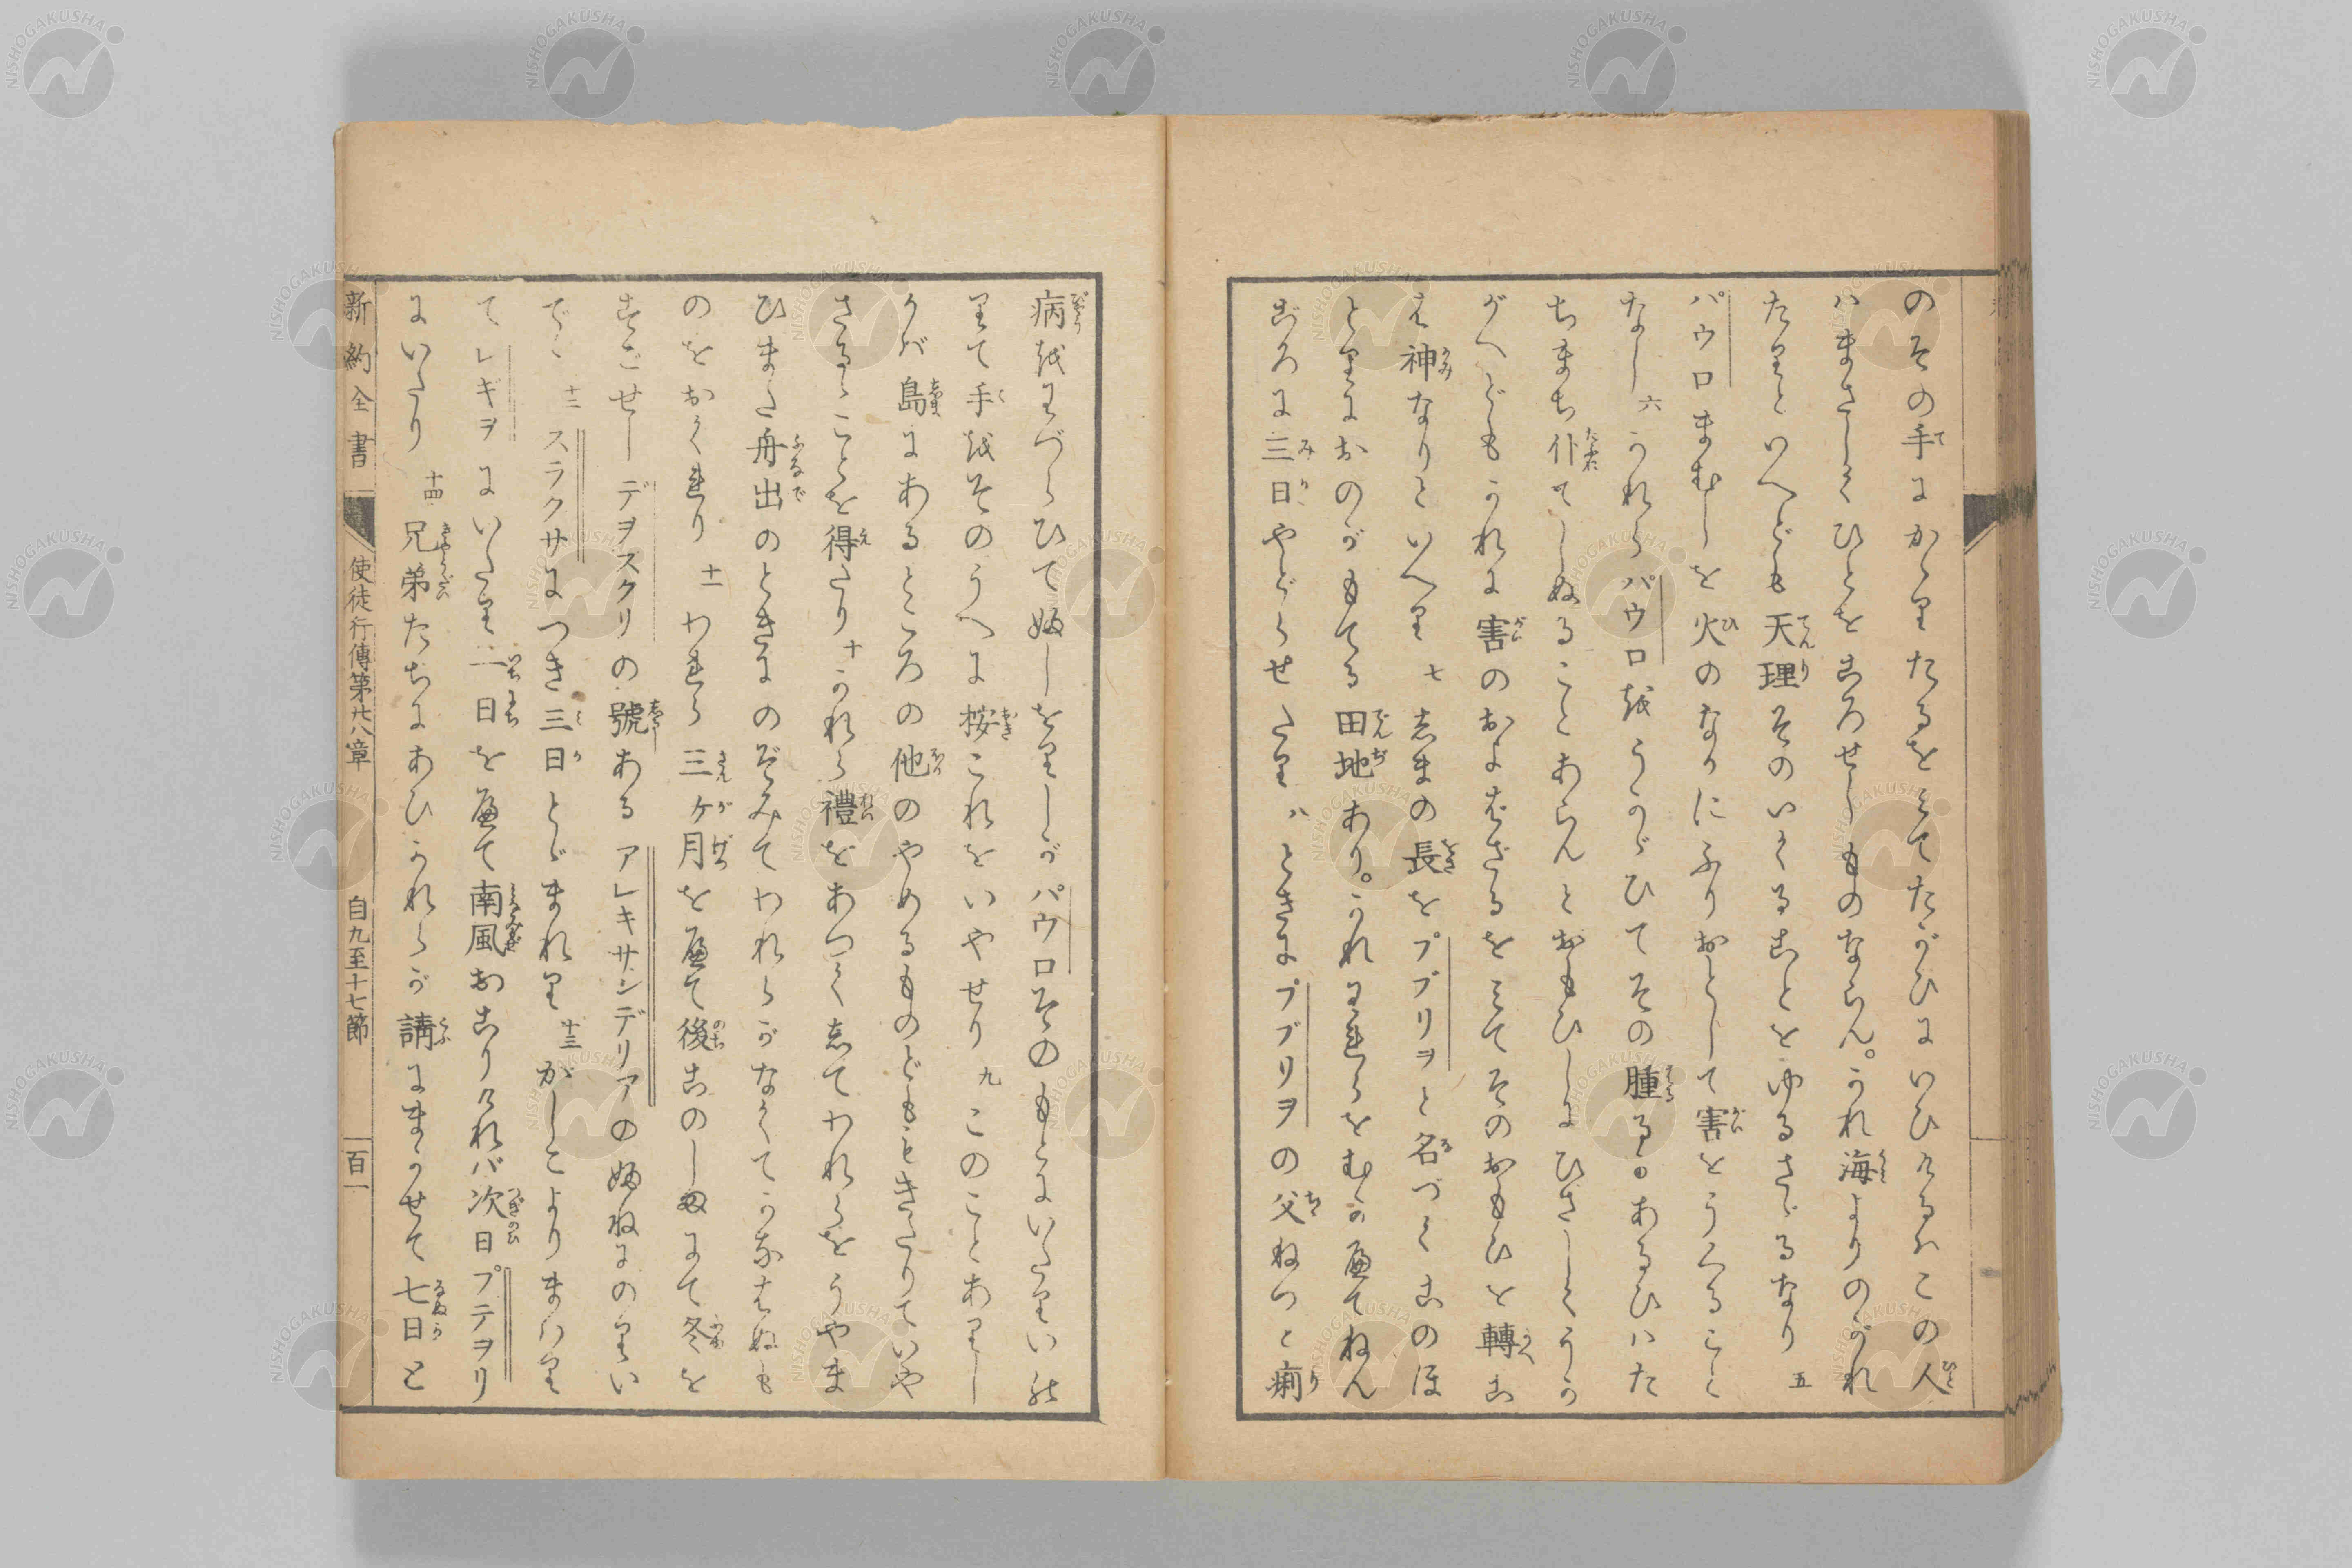 のその手にかゝりたるをみてたがひにいひけるハこの人
ハまさしくひとをころせしものならん。かれ海よりのがれ
たりといへども天理そのいくることをゆるさゞるなり 五
パウロまむしを火のなかにふりおとして害をうくること
なし 六 かれらパウロをうかゞひてその腫るゝかあるひハた
ちまち仆てしぬることあらんとおもひしにひさしくうか
がへどもかれに害のおよばざるをみてそのおもひを轉こ
は神なりといへり 七 しまの長をプブリヲと名づくこのほ
とりにおのがもてる田地あり。かれわれらをむかへてねん
ごろに三日やどらせたり 八 ときにプブリヲの父ねつと痢
病をわづらひてふしをりしがパウロそのもとにいたりいの
りて手をそのうへに按これをいやせり 九 このことありし
かバ島にあるところの他のやめるものどももきたりていや
さるゝことを得たり 十 かれら禮をあつくしてわれらをうやま
ひまた舟出のときにのぞみてわれらがなくてかなはぬも
のをおくれり 十一 われら三ケ月を歴て後このしまにて冬を
すごせしデヲスクリの號あるアレキサンデリアのふねにのりい
で 十二 スラクサにつき三日とゞまれり 十三 かしこよりまハり
てレギヲにいたり一日をへて南風おこりけれバ次日プテヲリ
にいたり 十四 兄弟たちにあひかれらが請にまかせて七日と
新約全書 使徒行傳第廿八章 自九至十七節 百一
NISHOGAKUSHA